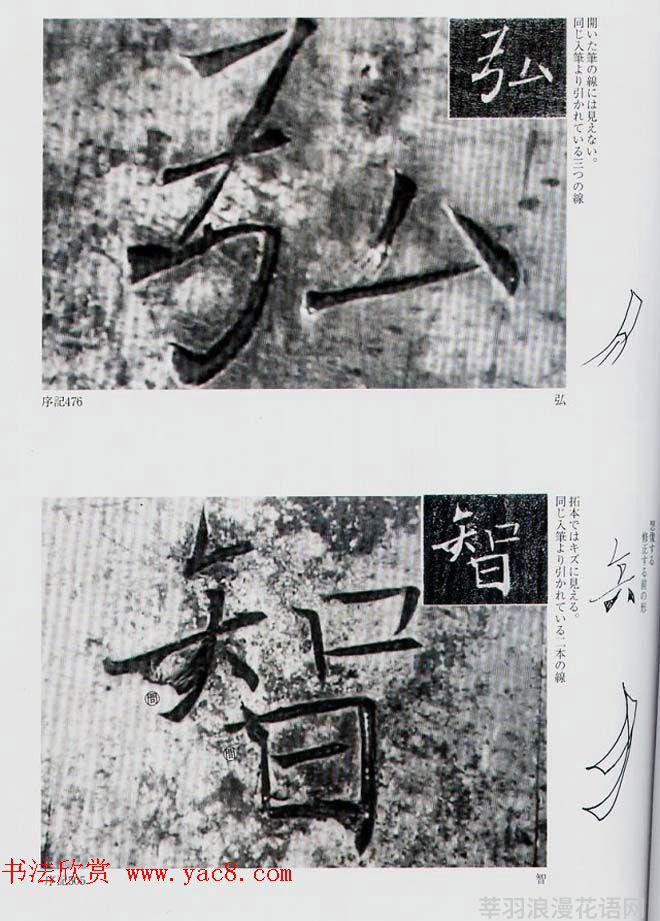 開いた筆の線には見えない。
同じ入筆より引かれている三つの線
弘
弘
序記476
弘
拓本ではキズに見える。
同じ入筆より引かれている二本の線
想像する
修正する前の形
智
智
序記305
智
书法欣赏 www.yac8.com
莘羽浪漫花语网